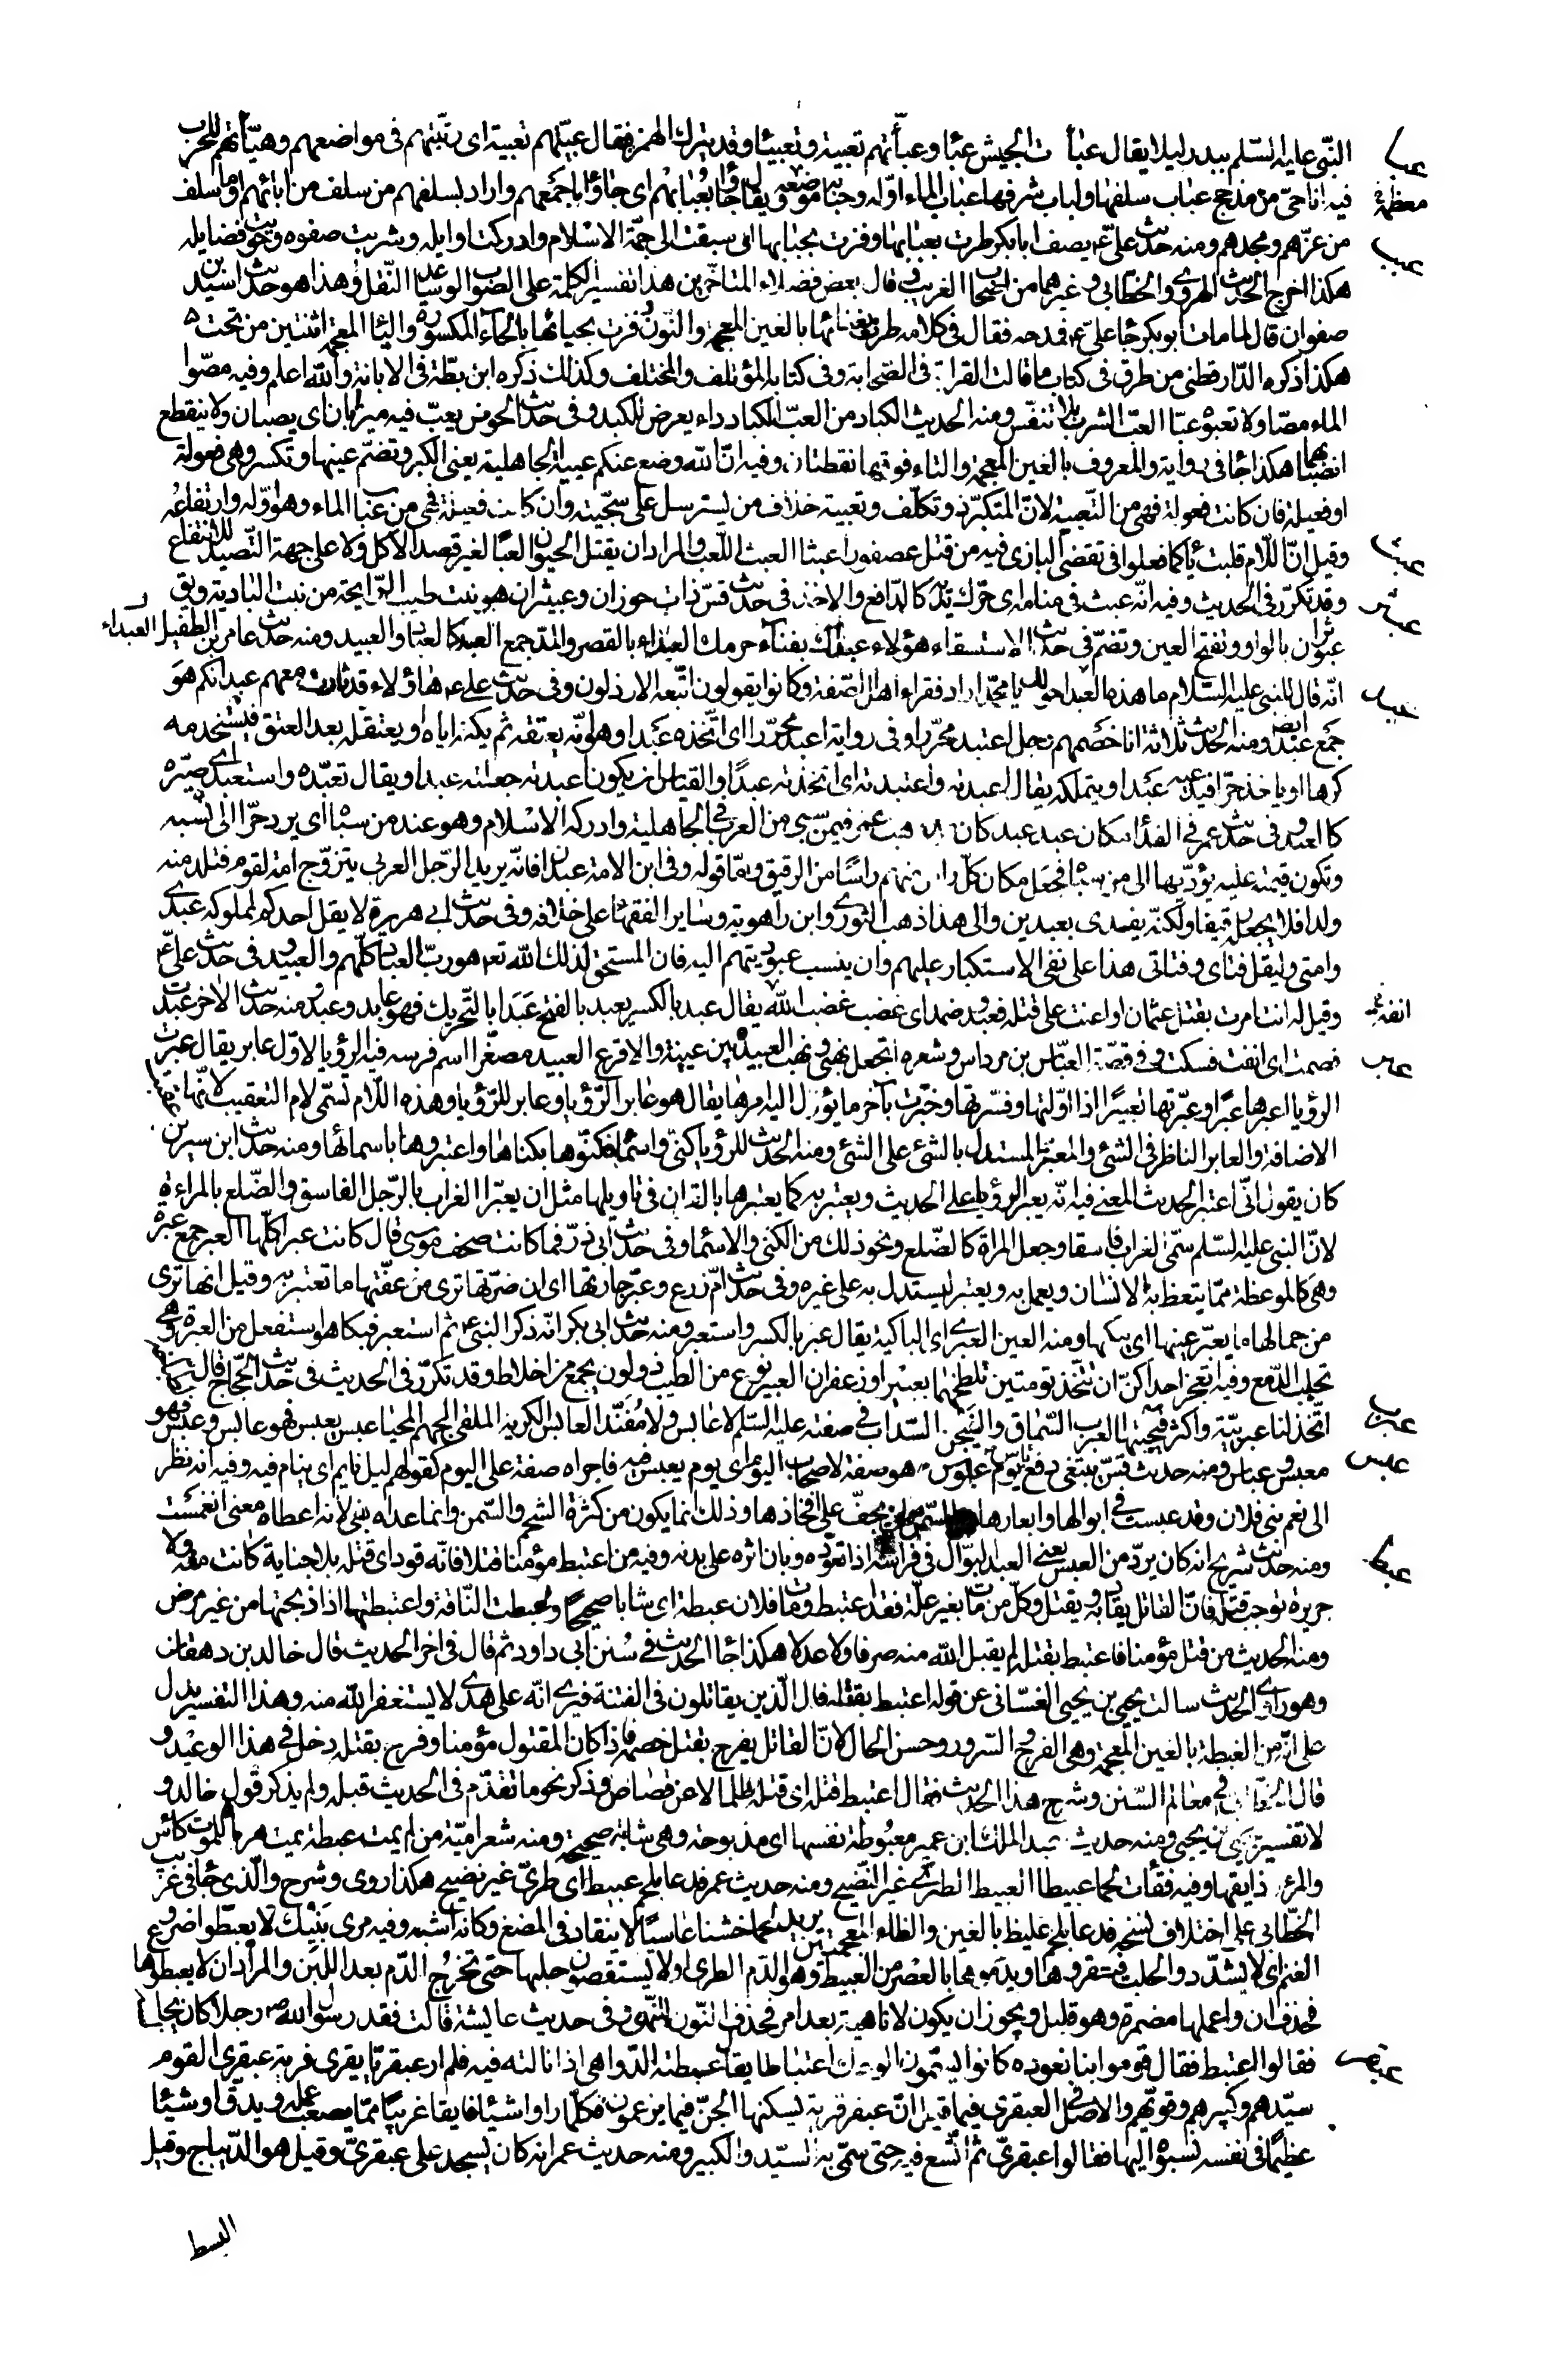 عبا
النبى عليه السّلم ببدر ليلا يقال عبأت الجيش عبئا وعبأتهم تعبية وتعبيئا وقد يترك الهمز فيقال عبيتهم تعبية اى رتبتهم فى مواضعهم وهيأتهم للحرب
فيه انا حىّ من مذحج عباب سلفها ولباب شرفها عباب الماء اوّله وحبابه موضعه ويقال جاؤا بعبابهم اى جاؤا باجمعهم واراد بسلفهم من سلف من ابائهم او ما سلف
عبب
من عزّهم ومجدهم ومنه حديث علىّ يصف ابا بكر طرت بعبابها وفزت بحبابها اى سبقت الى جمّة الاسلام وادركت اوايله وشربت صفوه وحويت فضايله
هكذا اخرج الحديث الهروى والخطابى وغيرهما من اصحاب الغريب وقال بعض فضلاء المتاخرين هذا تفسير الكلمة على الصواب لو ساعد النقل وهذا هو حديث اسيد بن
صفوان قال لما مات ابو بكر جاء علىّ فمدحه فقال فى كلامه طرت بغنائها بالغين المعجمة والنون وفزت بحيائها بالحاء المكسورة والياء المعجمة اثنتين من تحت
هكذا ذكره الدّارقطنى من طرق فى كتاب ما قالت القرابة فى الصّحابة وفى كتابه المؤتلف والمختلف وكذلك ذكره ابن بطّة فى الابانة والله اعلم وفيه مصّوا
الماء مصّا ولا تعبوه عبّا العبّ الشرب بلا تنفّس ومنه الحديث الكباد من العبّ الكباد داء يعرض للكبد وفى حديث الحوض يعبّ فيه ميزابان اى يصبان ولا ينقطع
انصبابهما هكذا جاء فى رواية والمعروف بالغين المعجمة والتاء فوقها نقطتان وفيه انّ الله وضع عنكم عبية الجاهلية يعنى الكبر وتضمّ عينها وتكسر وهى فعولة
او فعيلة فان كانت فعولة فهى من التعبية لانّ المتكبّر ذو تكلّف وتعبية خلاف من يسترسل على سجّيته وان كانت فعيلة فهى من عباب الماء وهو اوّله وارتفاعه
عبث
وقيل انّ اللام قلبت ياء كما فعلوا فى تقضى البازى فيه من قتل عصفورا عبثا العبث اللّعب والمراد ان يقتل الحيوان لعبا لغير قصد الاكل ولا على جهة التصيد للانتفاع
عبثر
وقد تكرّر فى الحديث وفيه انّه عبث فى منامه اى حرّك يديه كالدّافع والاخذ فى حديث قسّ ذات حوزان وعبيثران هو نبت طيب الرّايحة من نبت البادية ويق
عبوثران بالواو وتفتح العين وتضمّ فى حديث الاستسقاء هؤلاء عبداك بفناء حرمك العبداء بالقصر والمدّ جمع العبد كالعباد والعبيد ومنه حديث عامر بن الطفيل
عبد
انّه قال للنبى عليه السّلام ما هذه العبدا حولك يا محمّد اراد فقراء اهل الصّفة وكانوا يقولون اتبعه الارذلون وفى حديث على هاؤلاء قد ثارت معهم عبدانكم هو
جمع عبد ايضا ومنه الحديث ثلاثة انا خصمهم رجل اعتبد محرّرا وفى رواية اعبد محرّرا اى اتّخذه عبدا وهو انّه يعتقه ثم يكتمه ايّاه او يعتقله بعد العتق فيستخدمه
كرها او ياخذ حرّا فيدعيه عبدا ويتملكه يقال اعبدته واعتبدته اى اتخذته عبدًا والقياس ان يكون اعبدته جعلته عبدا ويقال تعبّده واستعبده اى صيّره
كالعبد وفى حديث عمر فى الفداء مكان عبد عبد كان من مذهب عمر فيمن سبى من العرب فى الجاهلية وادركه الاسلام وهو عند من سباه ان يرد حرّا الى نسبه
وتكون قيمته عليه يؤدّيها الى من سباه فجعل مكان كلّ راس منهم راسًا من الرقيق وامّا قوله وفى ابن الامة عبدان فانّه يريد الرّجل العربى يتزوّج امة لقوم فتلد منه
ولدا فلا يجعله رقيقا ولكنّه يفدى بعبدين والى هذا ذهب الثورى وابن راهوية وساير الفقهاء على خلافه وفى حديث ابى هريرة لا يقل احدكم لمملوكه عبدى
وامتى وليقل فتاى وفتاتى هذا على نفى الاستكبار عليهم وان ينسب عبوديتهم اليه فان المستحق لذلك الله تع هو ربّ العباد كلّهم والعبيد وفى حديث علىّ
وقيل له انت امرت بقتل عثمان او اعنت على قتله فعبد وضمد اى غضب غضب الله يقال عبد بالكسر يعبد بالفتح عَبَدا بالتّحريك فهو عابد وعبد ومنه حديث الاخر عبدت
عبر
فصمت اى انفت فسكت وفى قصّة العبّاس بن مرداس وشعره اتجعل نهبى ونهب العبيد بين عيينة والاقرع العبيد مصغّرا اسم فرسه فيه الرؤيا لاوّل عابر يقال عبرت
الرؤيا اعبرها عبرا وعبّرتها تعبيرًا اذا اوّلتها وفسّرتها وخبّرت بآخر ما يؤول اليه امرها يقال هو عابر الرّؤيا وعابر للرّؤيا وهذه اللام تسمّى لام التعقيب لانّها
الاضافة والعابر الناظر فى الشئ والمعبّر المستدل بالشئ على الشئ ومنه الحديث للرؤيا كنى واسماء فكنّوها بكناها واعتبروها باسمائها ومنه حديث ابن سيرين
كان يقول انّى اعتبر الحديث المعنى فيه انّه يعبر الرؤيا على الحديث ويعتبر به كما يعتبرها بالقران فى تاويلها مثل ان يعبّر الغراب بالرّجل الفاسق والضّلع بالمراءة
لانّ النبى عليه السّلم سمّى الغراب فاسقا وجعل المراة كالضّلع ونحو ذلك من الكنى والاسماء وفى حديث ابى ذرّ فما كانت صحف موسى قال كانت عبرا كلّها العبر جمع عبرة
وهى كالموعظة ممّا يتعظ به الانسان ويعمل به ويعتبر ليستدل به على غيره وفى حديث امّ زرع وعبر جارتها اى ان ضرّتها ترى من عفّتها ما تعتبر به وقيل انها ترى
من جمالها ما يعبّر عينها اى يبكيها ومنه العين العبرى اى الباكية يقال عبر بالكسر واستعبر ومنه حديث ابى بكر انّه ذكر النبى ثم استعبر فبكا هو استفعل من العبرة وهى
تحلب الدّمع وفيه اتعجز احداكنّ ان تتّخذ تومتين تلطخهما بعبير او زعفران العبير نوع من الطيب ذو لون يجمع من اخلاط وقد تكرّر فى الحديث فى حديث الحجّاج قال
عبرب
اتّخذ لنا عبربيّة واكثر فيجنها العبرب السّماق والفيجن السّذاب فى صفته عليه السّلم لا عابس ولا مُفَنّد العابس الكريه الملقى الجهم المحيّا عبس يعبس فهو عابس وعبّس فهو
عبس
معبّس وعباس ومنه حديث قسّ يبتغى دفع باس يوم عبوس هو صفة لاصحاب اليوم اى يوم يعبس فيه فاجراه صفة على اليوم كقولهم ليل نايم اى ينام فيه وفيه انه نظر
الى نعم بنى فلان وقد عبست فى ابوالها وابعارها من السّمن هو ان يجفّ على افخاذها وذلك انما يكون من كثرة الشحم والسّمن وانما عداه بفى لانه اعطاه معنى انغمست
عبط
ومنه حديث شريح انه كان يردّ من العبس يعنى العبد البوّال فى فراشه اذا تعوّده وبان اثره على بدنه وفيه من اعتبط مؤمنا قتلا فانّه قود اى قتله بلا جناية كانت منه ولا
جريرة توجب قتله فانّ القاتل يقاد به ويقتل وكلّ من مات بغير علّة فقد اعتبط ومات فلان عبطة اى شابا صحيحًا وعبطت النّاقة واعتبطتها اذا ذبحتها من غير مرض
ومنه الحديث من قتل مؤمنا فاعتبط بقتله لم يقبل الله منه صرفا ولا عدلا هكذا جاء الحديث فى سُنن ابى داود ثم قال فى اخر الحديث قال خالد بن دهقان
وهو راوى الحديث سالت يحيى بن يحيى الغسّانى عن قوله اعتبط بقتله قال الّذين يقاتلون فى الفتنة فيرى انّه على هدى لا يستغفر الله منه وهذا التفسير يدل
على انّه من الغبطة بالغين المعجمة وهى الفرح والسّرور وحسن الحال لانّ القاتل يفرح بقتل خصمه فاذا كان المقتول مؤمنا وفرح بقتله دخل فى هذا الوعيد و
قال الخطابى فى معالم السّنن وشرح هذا الحديث فقال اعتبط قتله اى قتله ظلما لا عن قصاص وذكر نحو ما تقدّم فى الحديث قبله ولم يذكر قول خالد و
لا تفسير يحيى بن يحيى ومنه حديث عبد الملك ابن عمير معبُوطة نفسها اى مذبوحة وهى شابة صحيحة ومنه شعر اميّة من لم يمت عبطة يمت هرما للموت كاس
والمرء ذايقها وفيه فقأت لحما عبيطا العبيط الطرى غير النّضيج ومنه حديث عمر فدعا بلحم عبيط اى طرىّ غير نضيج هكذا روى وشرح والّذى جاء فى غريب
الخطّابى على اختلاف نسخه فدعا بلحم غليظ بالغين والظاء المعجمتين يريد لحما خشنا عاسيًا لا ينقاد فى المضغ وكانه اشبه وفيه مرى بَنيك لا يعبطوا ضروع
الغنم اى لا يشدّدوا الحلب فيعقروها ويدموها بالعصر من العبيط وهو الدّم الطرى او لا يستقصون حلبها حتى تخرج الدّم بعد اللبن والمراد ان لا يعبطوها
فحذف ان واعملها مضمرة وهو قليل ويجوز ان يكون لا ناهية بعد امر فحذف النّون للنّهى وفى حديث عايشة قالت فقد رسول الله رجلا كان يجالسه
فقالوا اعتبط فقال قوموا بنا نعوده كانوا يسمّون الوعك اعتباطا يقال عبطته الدّواهى اذا نالته فيه فلم ار عبقريّا يفرى فريه عبقرى القوم
عبقر
سيّدهم وكبيرهم وقويّهم والاصل فى العبقرى فيما قيل انّ عبقر قرية يسكنها الجنّ فيما يزعمون فكلّما راوا شيئا فايقا غريبًا ممّا يصعب عمله ويدقّ او شيئا
عظيمًا فى نفسه نسبوه اليها فقالوا عبقرىّ ثم اتّسع فيه حتى سمّى به السّيّد والكبير ومنه حديث عمر انه كان يسجد على عبقرىّ وقيل هو الدّيباج وقيل
البسط